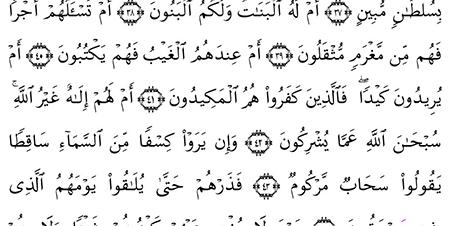 بِسُلْطَٰنٍ مُّبِينٍ ﴿٣٧﴾ أَمْ لَهُ ٱلْبَنَٰتُ وَلَكُمُ ٱلْبَنُونَ ﴿٣٨﴾ أَمْ تَسْـَٔلُهُمْ أَجْرًا
فَهُم مِّن مَّغْرَمٍ مُّثْقَلُونَ ﴿٣٩﴾ أَمْ عِندَهُمُ ٱلْغَيْبُ فَهُمْ يَكْتُبُونَ ﴿٤٠﴾ أَمْ
يُرِيدُونَ كَيْدًا ۖ فَٱلَّذِينَ كَفَرُوا۟ هُمُ ٱلْمَكِيدُونَ ﴿٤١﴾ أَمْ لَهُمْ إِلَٰهٌ غَيْرُ ٱللَّهِ ۚ
سُبْحَٰنَ ٱللَّهِ عَمَّا يُشْرِكُونَ ﴿٤٢﴾ وَإِن يَرَوْا۟ كِسْفًا مِّنَ ٱلسَّمَآءِ سَاقِطًا
يَقُولُوا۟ سَحَابٌ مَّرْكُومٌ ﴿٤٣﴾ فَذَرْهُمْ حَتَّىٰ يُلَٰقُوا۟ يَوْمَهُمُ ٱلَّذِى